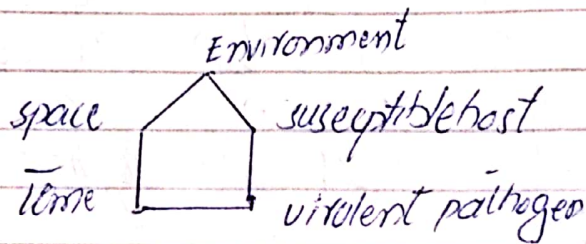 Environment
space susceptible host
Time virulent pathogen